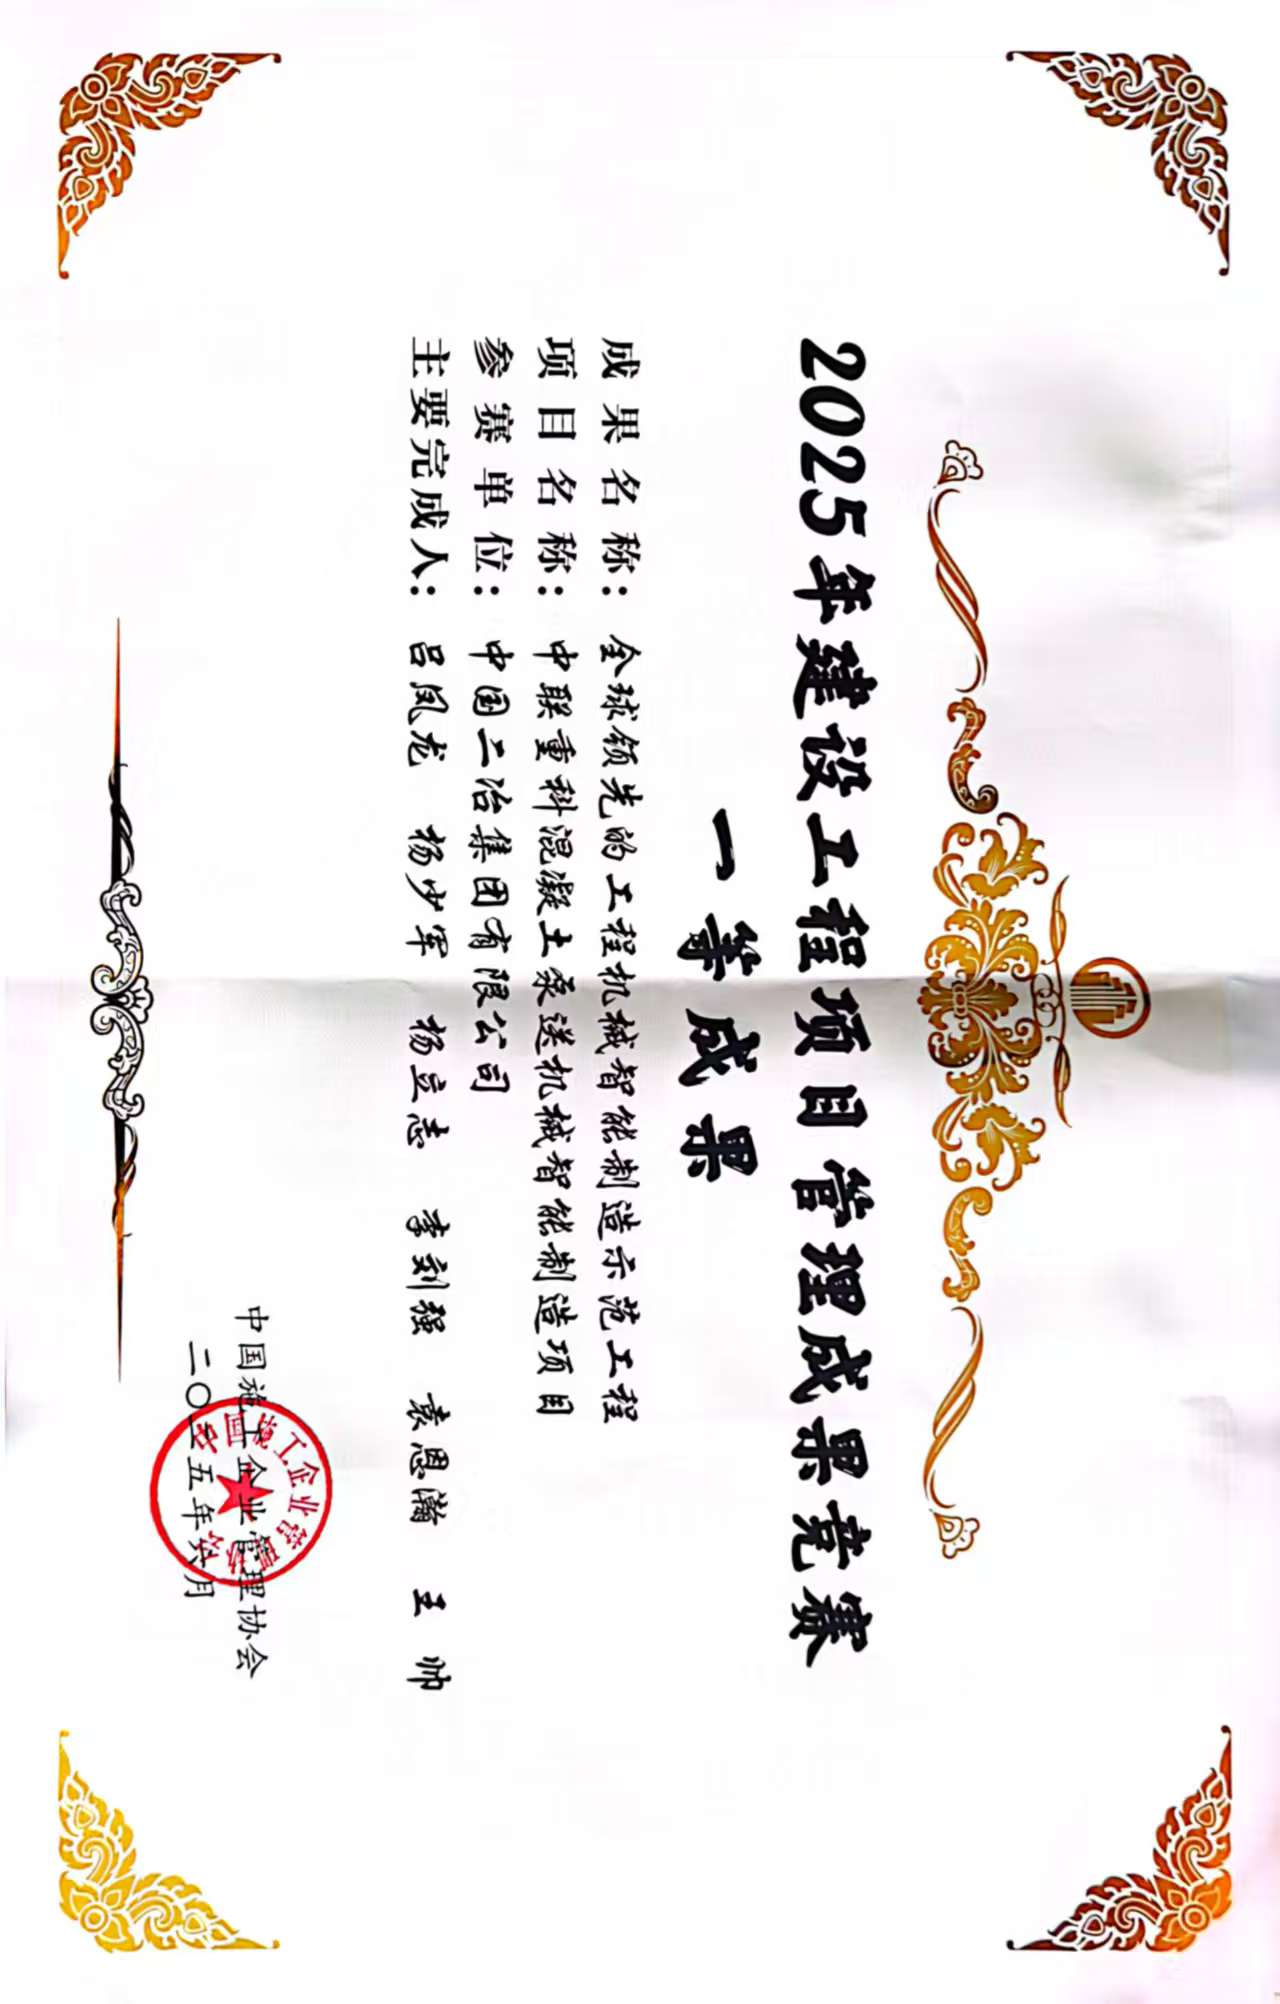 2025年建设工程项目管理成果竞赛
一等成果
成果名称：全球领先的工程机械智能制造示范工程
项目名称：中联重科混凝土泵送机械智能制造项目
参赛单位：中国二冶集团有限公司
主要完成人：吕凤龙 杨少军 杨立志 李刻强 袁恩瀚 王帅
中国施工企业管理协会
二〇二五年六月
中国施工企业管理协会